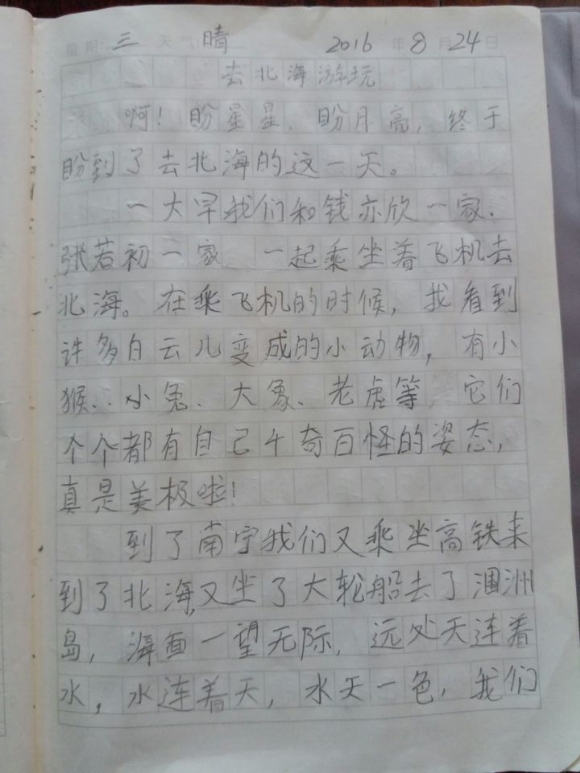 星期 三 天气 晴 2016 年 8 月 24 日
去北海游玩
啊！盼星星、盼月亮，终于
盼到了去北海的这一天。
一大早我们和钱亦欣一家、
张若初一家 一起乘坐着飞机去
北海。在乘飞机的时候，我看到
许多白云儿变成的小动物，有小
猴、小兔、大象、老虎等，它们
个个都有自己千奇百怪的姿态，
真是美极啦！
到了南宁我们又乘坐高铁来
到了北海，又坐了大轮船去了涠洲
岛，海面一望无际，远处天连着
水，水连着天，水天一色，我们